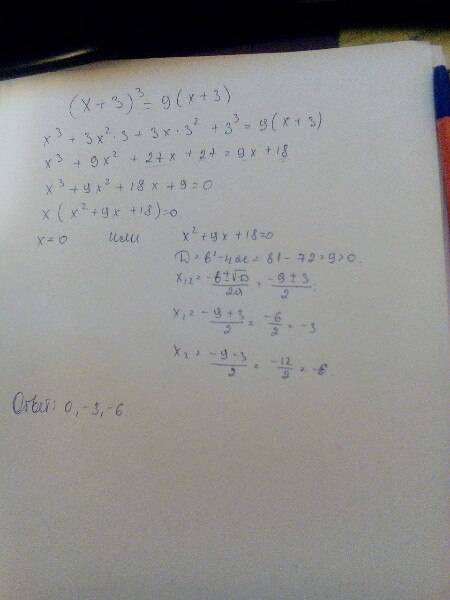 (x+3)³=9(x+3)
x³+3x²·3+3x·3²+3³=9(x+3)
x³+9x²+27x+27=9x+18
x³+9x²+18x+9=0
x(x²+9x+18)=0
x=0 или x²+9x+18=0
D=b²-4ac=81-72=9>0.
x₁,₂=(-b±√D)/2a=(-9±3)/2.
x₁=(-9+3)/2=-6/2=-3
x₂=(-9-3)/2=-12/2=-6.
Ответ: 0,-3,-6